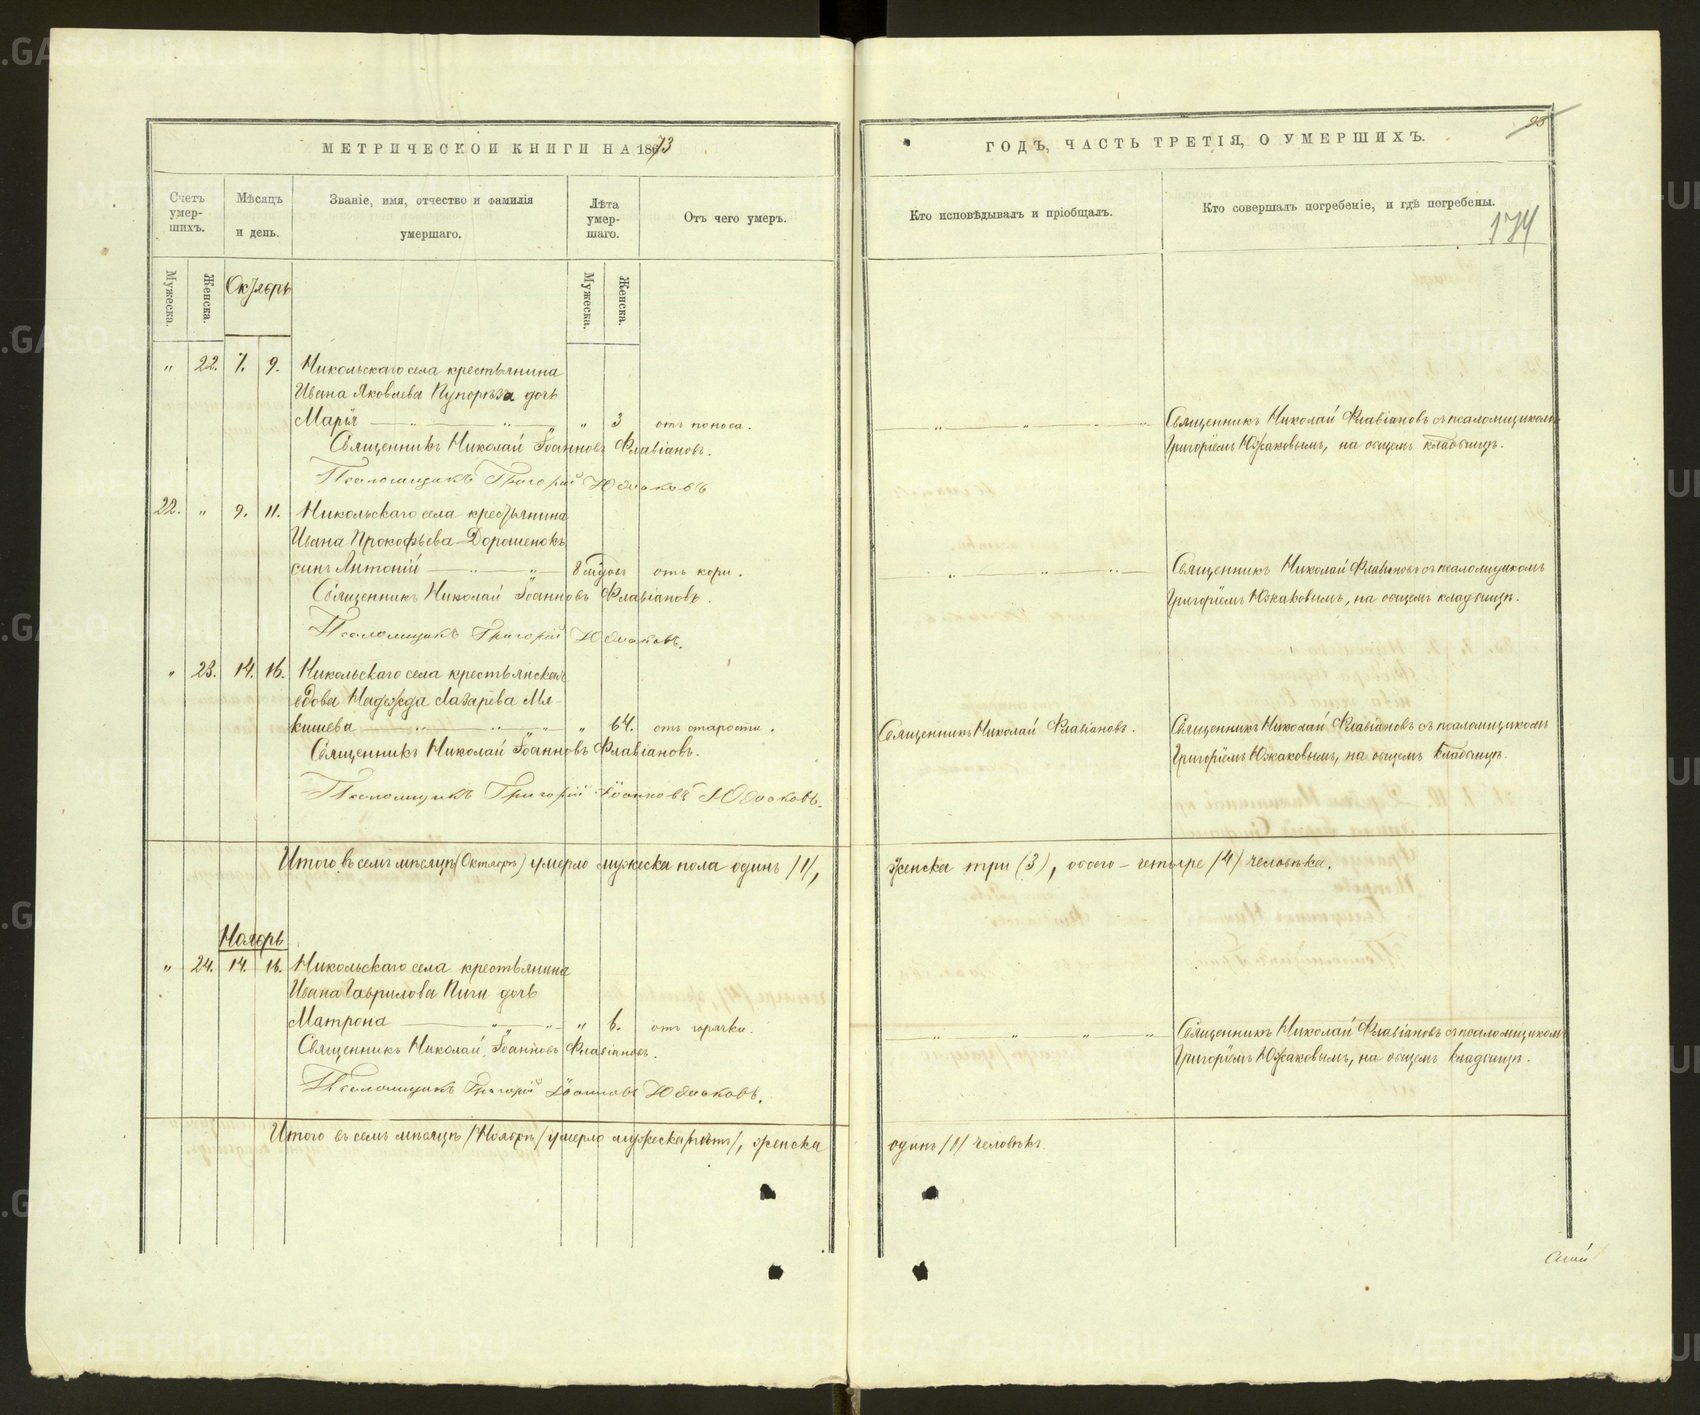 МЕТРИЧЕСКОЙ КНИГИ НА 1873
Счетъ умер- шихъ.
Мѣсяцъ и день.
Званіе, имя, отчество и фамилія умершаго.
Лѣта умер- шаго.
Отъ чего умеръ.
Мужеска.
Женска.
Октябрь
Мужеска.
Женска.
" 22. 7. 9. Никольскаго села крестьянина
Ивана Яковлева Купорѣза дочь
Марія " " " 3 отъ поноса.
Священникъ Николай Іоанновъ Флавіановъ.
Псаломщикъ Григорій Южаковъ
22. " 9. 11. Никольскаго села крестьянина
Ивана Прокофьева Дорошенокъ
сынъ Антоній " " отъ кори.
Священникъ Николай Іоанновъ Флавіановъ.
Псаломщикъ Григорій Южаковъ.
" 23. 14. 16. Никольскаго села крестьянская
вдова Надежда Лазарева Мя-
кишева " " " " 64. отъ старости.
Священникъ Николай Іоанновъ Флавіановъ.
Псаломщикъ Григорій Іоанновъ Южаковъ.
Итого въ семъ мѣсяцѣ (Октябрѣ) умерло мужеска пола одинъ /1/,
Ноябрь
" 24. 14. 16. Никольскаго села крестьянина
Ивана Гаврилова Пиги дочь
Матрона " " " 6. отъ горячки.
Священникъ Николай Іоанновъ Флавіановъ.
Псаломщикъ Григорій Іоанновъ Южаковъ.
Итого въ семъ мѣсяцѣ /Ноябрѣ/ умерло мужеска /нѣтъ/, женска
ГОДЪ, ЧАСТЬ ТРЕТІЯ, О УМЕРШИХЪ.
Кто исповѣдывалъ и пріобщалъ.
Кто совершалъ погребеніе, и гдѣ погребены.
174
" " " " Священникъ Николай Флавіановъ съ псаломщикомъ
Григоріемъ Южаковымъ, на общемъ кладбищѣ.
" " " Священникъ Николай Флавіановъ съ псаломщикомъ
Григоріемъ Южаковымъ, на общемъ кладбищѣ.
Священникъ Николай Флавіановъ. Священникъ Николай Флавіановъ съ псаломщикомъ
Григоріемъ Южаковымъ, на общемъ кладбищѣ.
женска три (3), обоего – четыре /4/ человѣка.
" " " " Священникъ Николай Флавіановъ съ псаломщикомъ
Григоріемъ Южаковымъ, на общемъ кладбищѣ.
одинъ /1/ человѣкъ.
METRIKI.GASO-URAL.RU